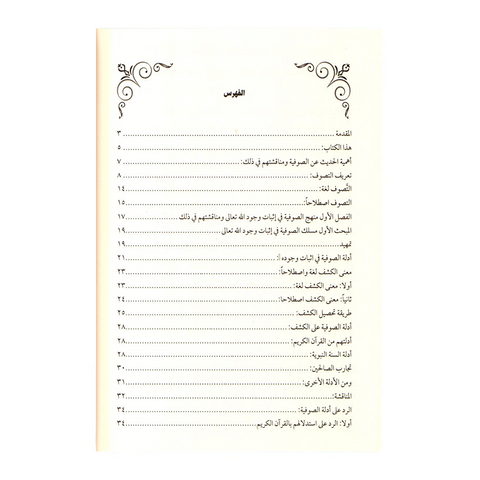 الفهرس
المقدمة ................ ٣
هذا الكتاب: ................ ٥
أهمية الحديث عن الصوفية ومناقشتهم في ذلك: ................ ٧
تعريف التصوف: ................ ٨
التَّصوف لغة: ................ ١٤
التصوف اصطلاحاً: ................ ١٥
الفصل الأول منهج الصوفية في إثبات وجود الله تعالى ومناقشتهم في ذلك ................ ١٧
المبحث الأول مسلك الصوفية في إثبات وجود الله تعالى ................ ١٩
تمهيد ................ ١٩
أدلة الصوفية في اثبات وجوده أ: ................ ٢١
معنى الكشف لغة واصطلاحاً: ................ ٢٣
أولا: معنى الكشف لغة: ................ ٢٣
ثانياً: معنى الكشف اصطلاحا: ................ ٢٤
طريقة تحصيل الكشف: ................ ٢٥
أدلة الصوفية على الكشف: ................ ٢٨
أدلتهم من القرآن الكريم: ................ ٢٨
أدلة السنة النبوية: ................ ٢٨
تجارب الصالحين: ................ ٣٠
ومن الأدلة الأخرى: ................ ٣١
المناقشة: ................ ٣٢
الرد على أدلة الصوفية: ................ ٣٤
أولا: الرد على استدلالهم بالقرآن الكريم ................ ٣٤